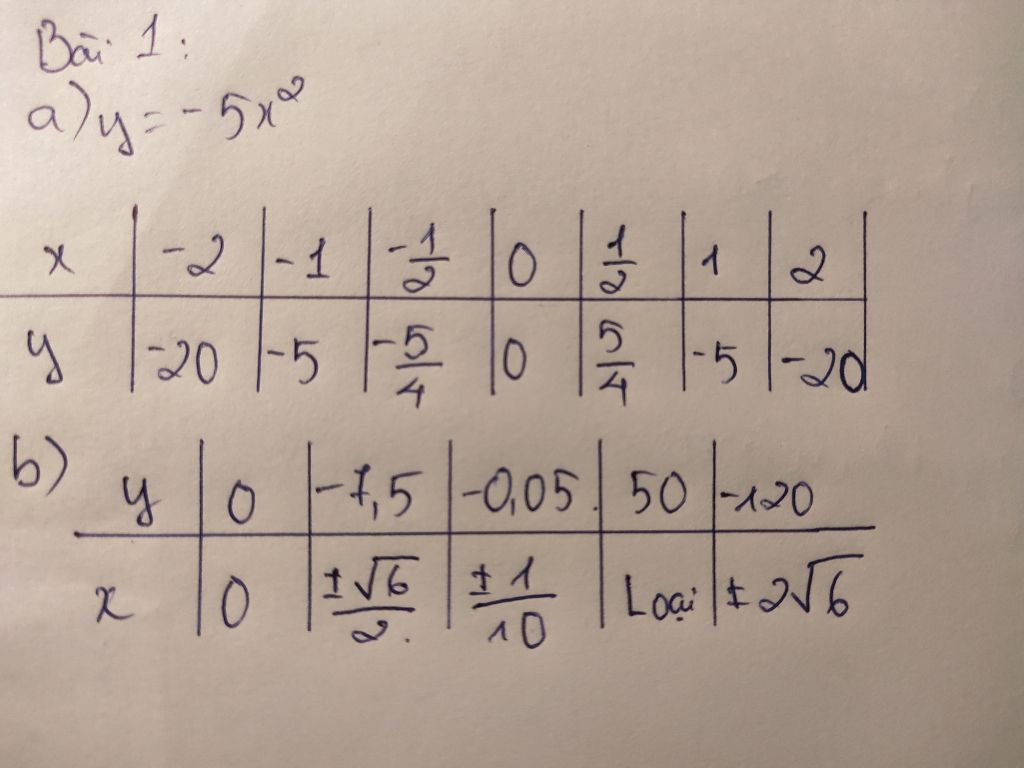 Bài 1:
a) y = -5x²
x | -2 | -1 | -1/2 | 0 | 1/2 | 1 | 2
y | -20 | -5 | -5/4 | 0 | 5/4 | -5 | -20
b) y | 0 | -7,5 | -0,05 | 50 | -120
x | 0 | ±√6/2 | ±1/10 | Loại | ±2√6